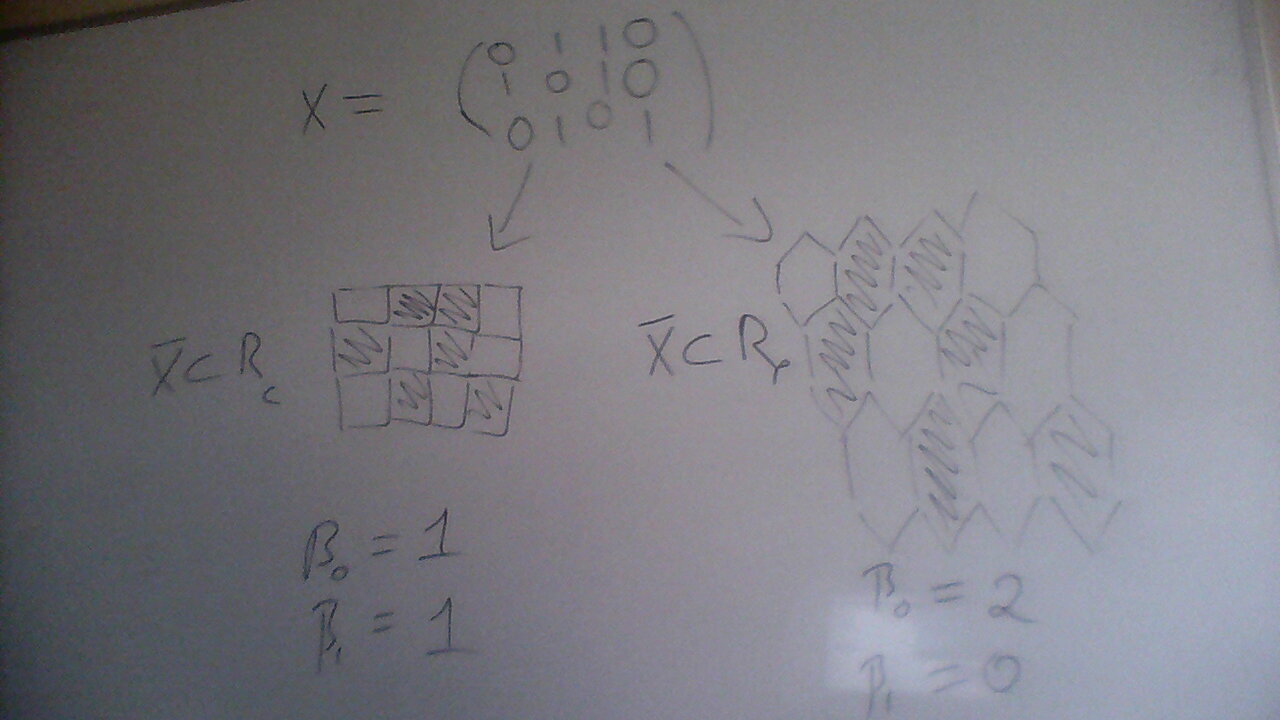 X = ( 0 1 1 0
1 0 1 0
0 1 0 1 )
X̄ ⊂ R_c
X̄ ⊂ R_p
β_0 = 1
β_1 = 1
β_0 = 2
β_1 = 0